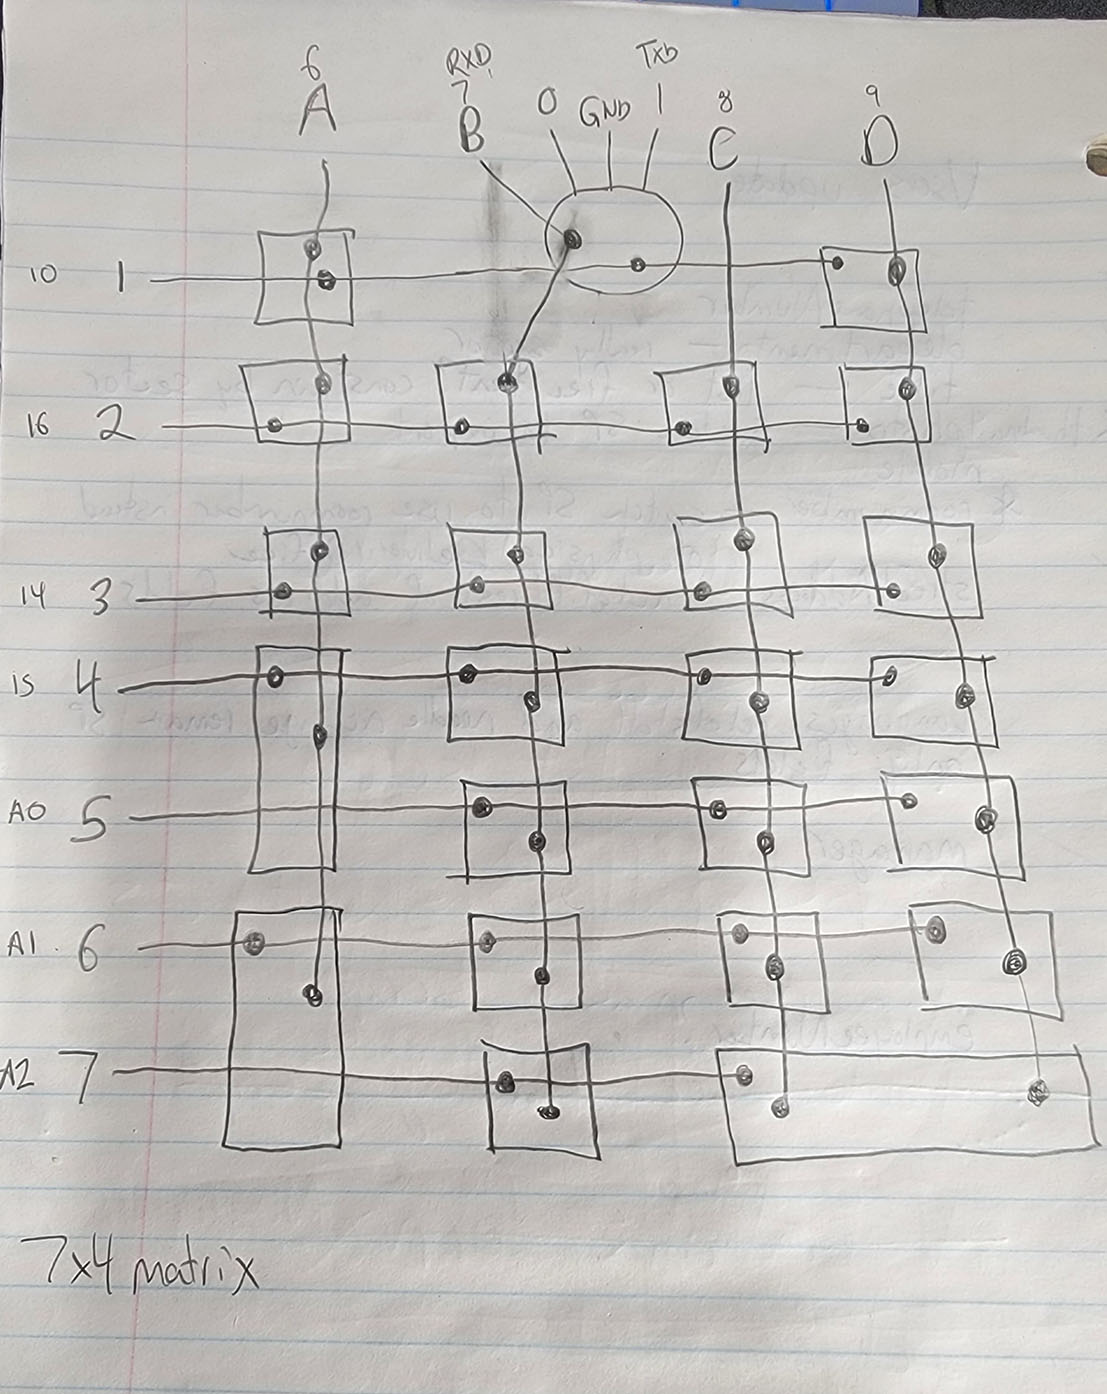 6 RXD 7 0 GND TXD 1 8 9
A B C D
10 1
16 2
14 3
15 4
A0 5
A1 6
A2 7
7x4 matrix